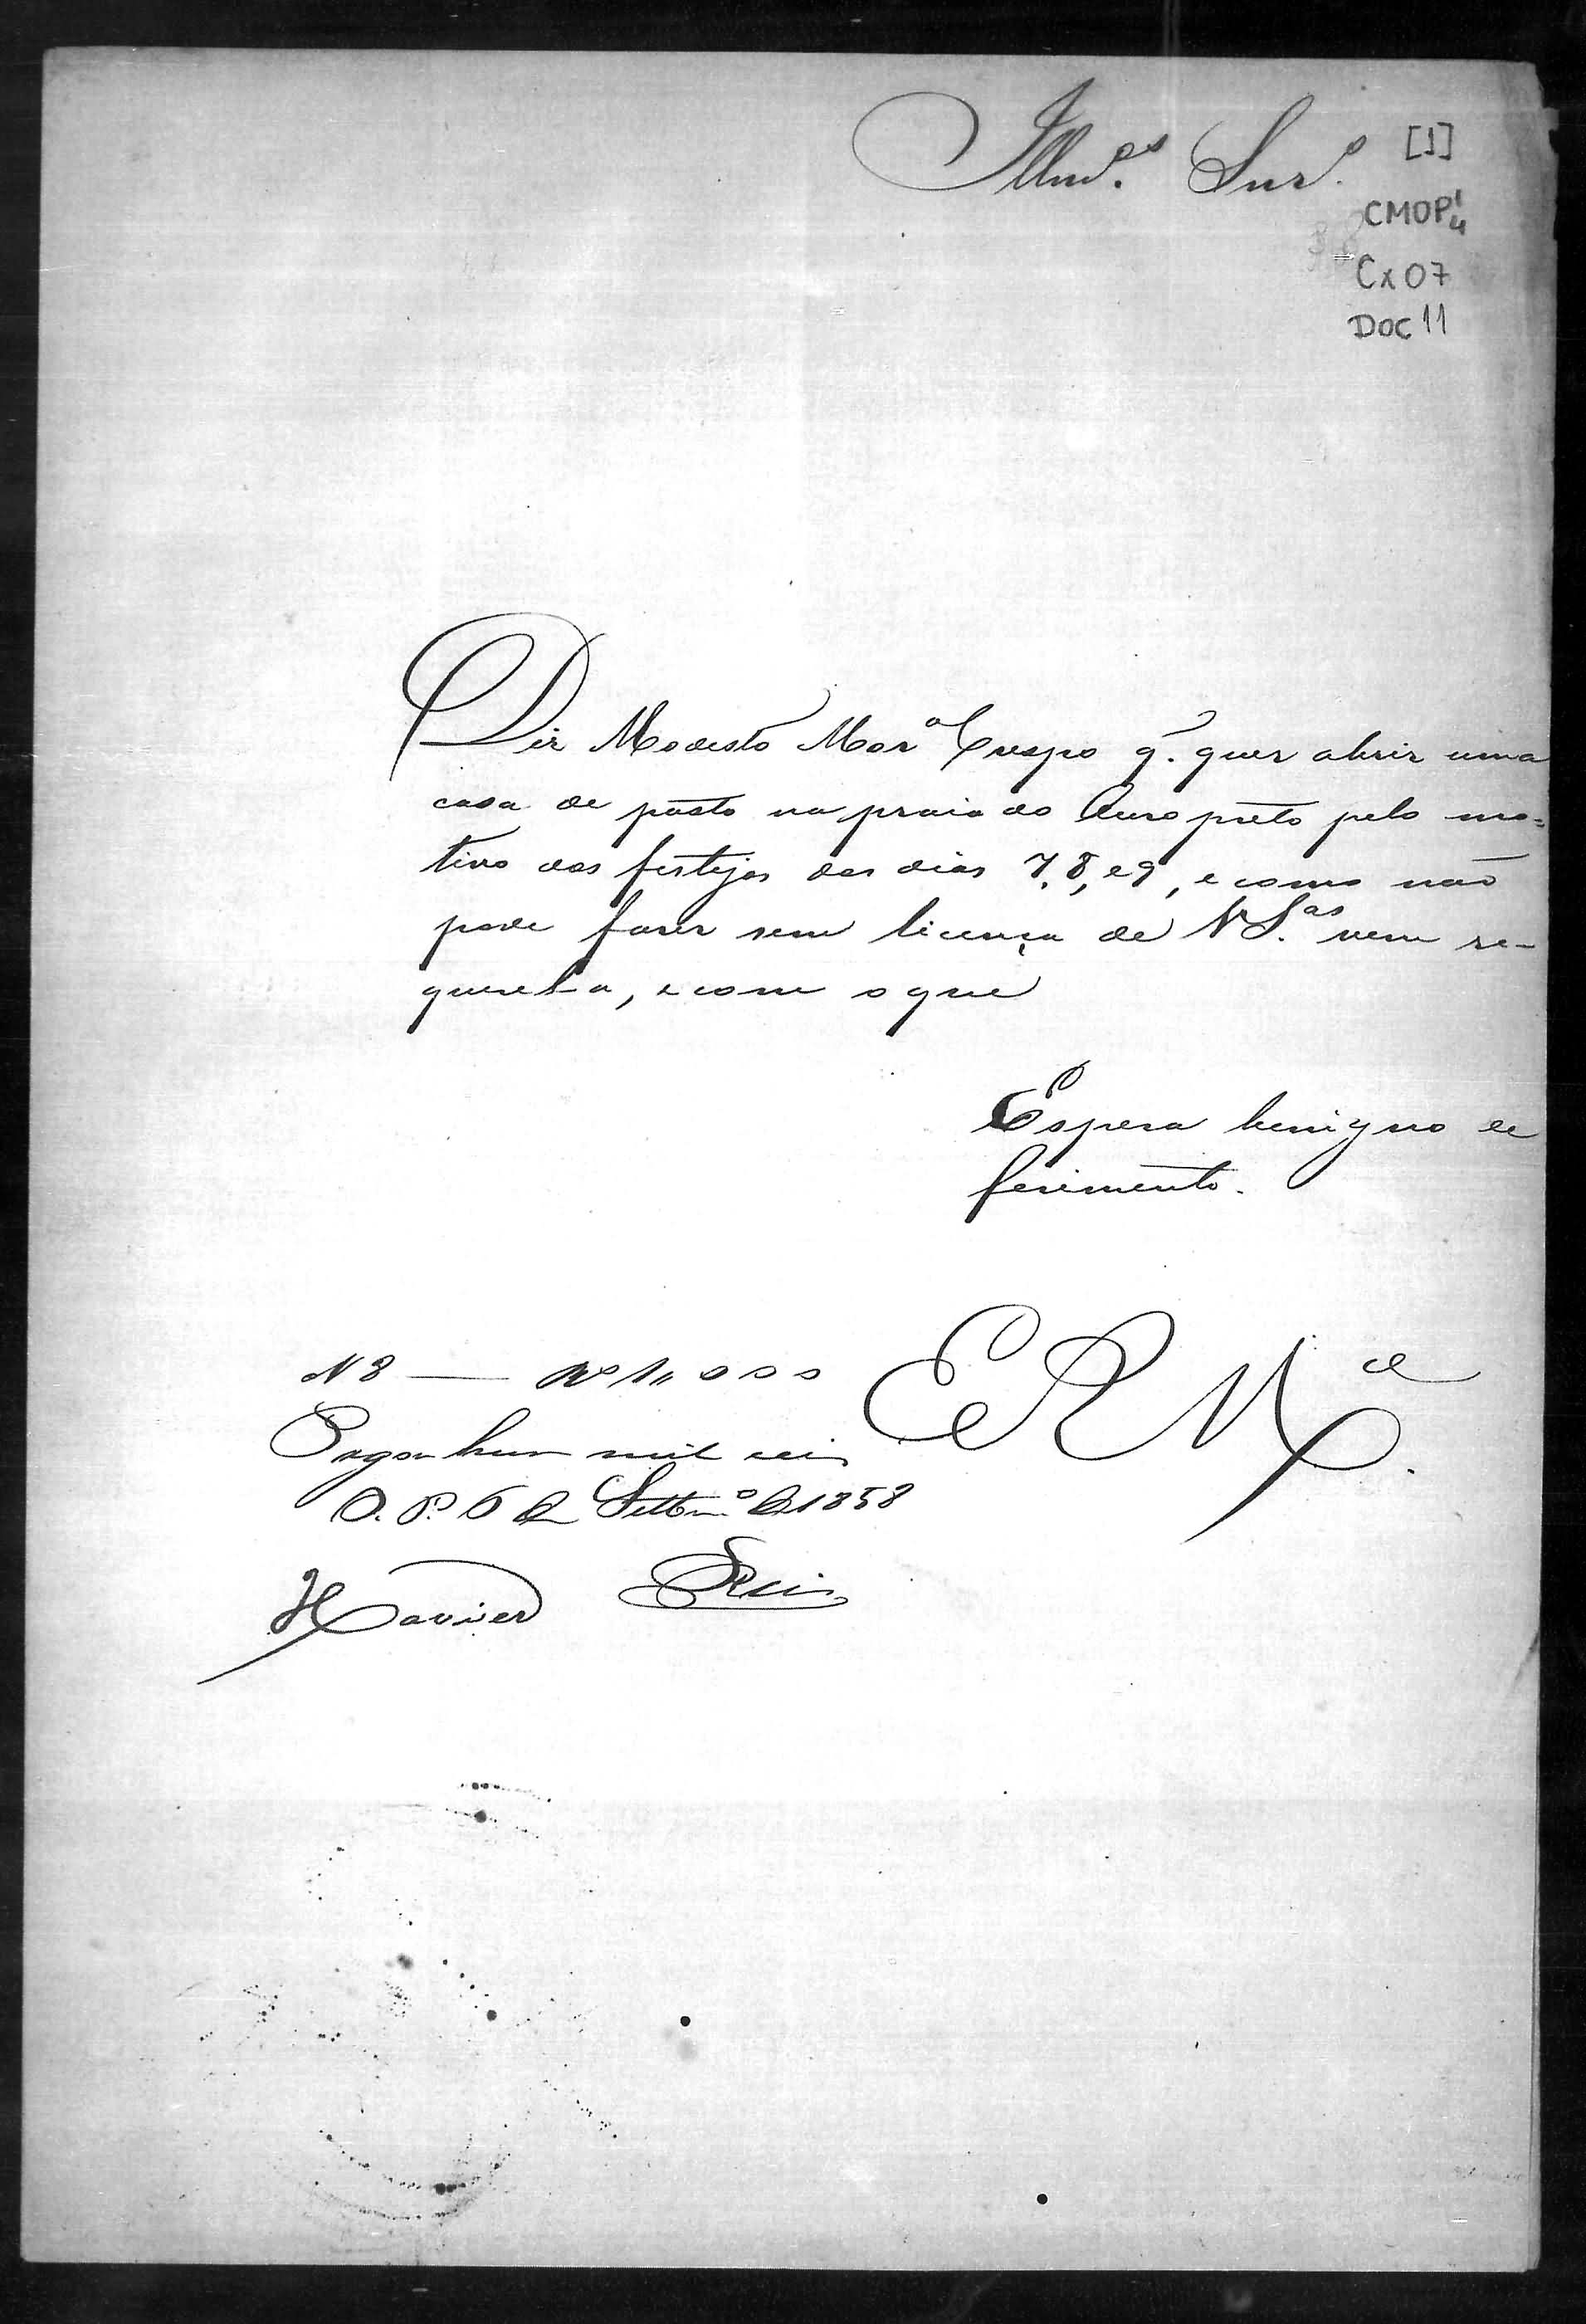 Illm.os Snr.s
[1]
CMOP
Cx 07
DOC 11
Diz Modesto Mor.a Crespo q. quer abrir uma
casa de pásto na praia do Ouro preto pelo mo=
tivo dos festejos dos dias 7, 8, e 9, e como não
pode fazer sem licença de VS.as vem re-
querel-a, e com o que
Espera benigno de
ferimento.
E R M.ce
N 8 — Rs 1,,000
Pagou hum mil reis
O. P. 6 de Settbr.o de 1858
Xavier Reis